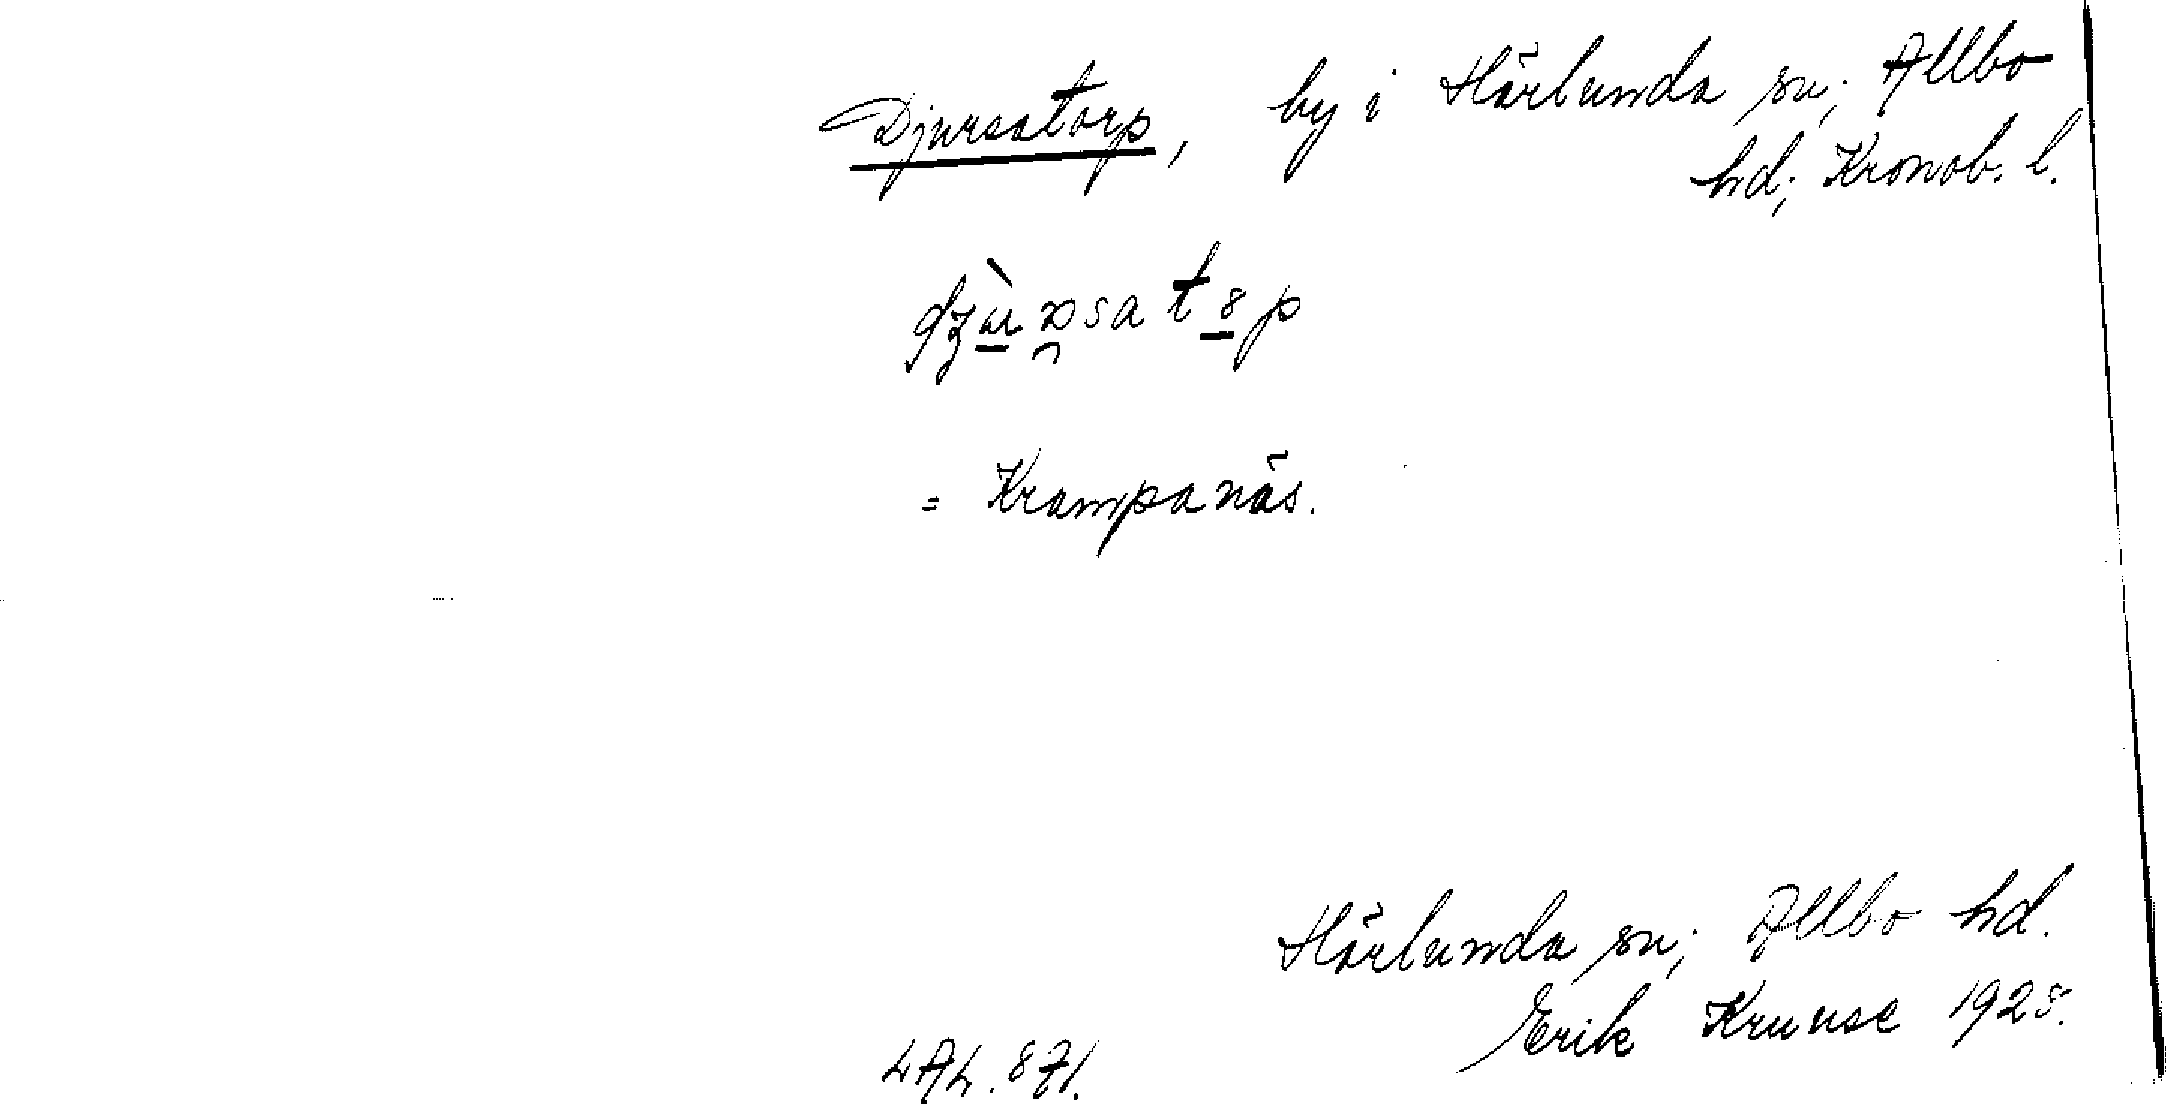 Djursatorp, by i Härlunda sn; Allbo
hd; Kronob. l.
= Krampanäs.
Härlunda sn; Allbo hd.
Erik Kruuse 1925.
LAL. 871.